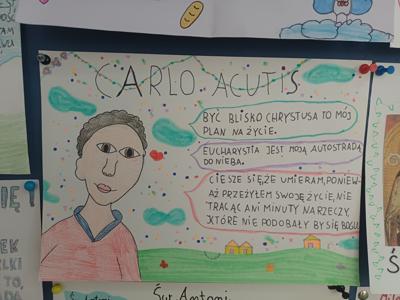 CARLO ACUTIS
BYĆ BLISKO CHRYSTUSA TO MÓJ
PLAN NA ŻYCIE.
EUCHARYSTIA JEST MOJĄ AUTOSTRADĄ
DO NIEBA.
CIESZE SIĘ ŻE UMIERAM, PONIEW-
AŻ PRZEŻYŁEM SWOJE ŻYCIE, NIE
TRACĄC ANI MINUTY NA RZECZY,
KTÓRE NIE PODOBAŁY BY SIĘ BOGU
Św. Antoni